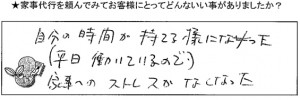 ★家事代行を頼んでみてお客様にとってどんないい事がありましたか？
自分の時間が持てる様になった
(平日働いているので)
家事へのストレスがなくなった